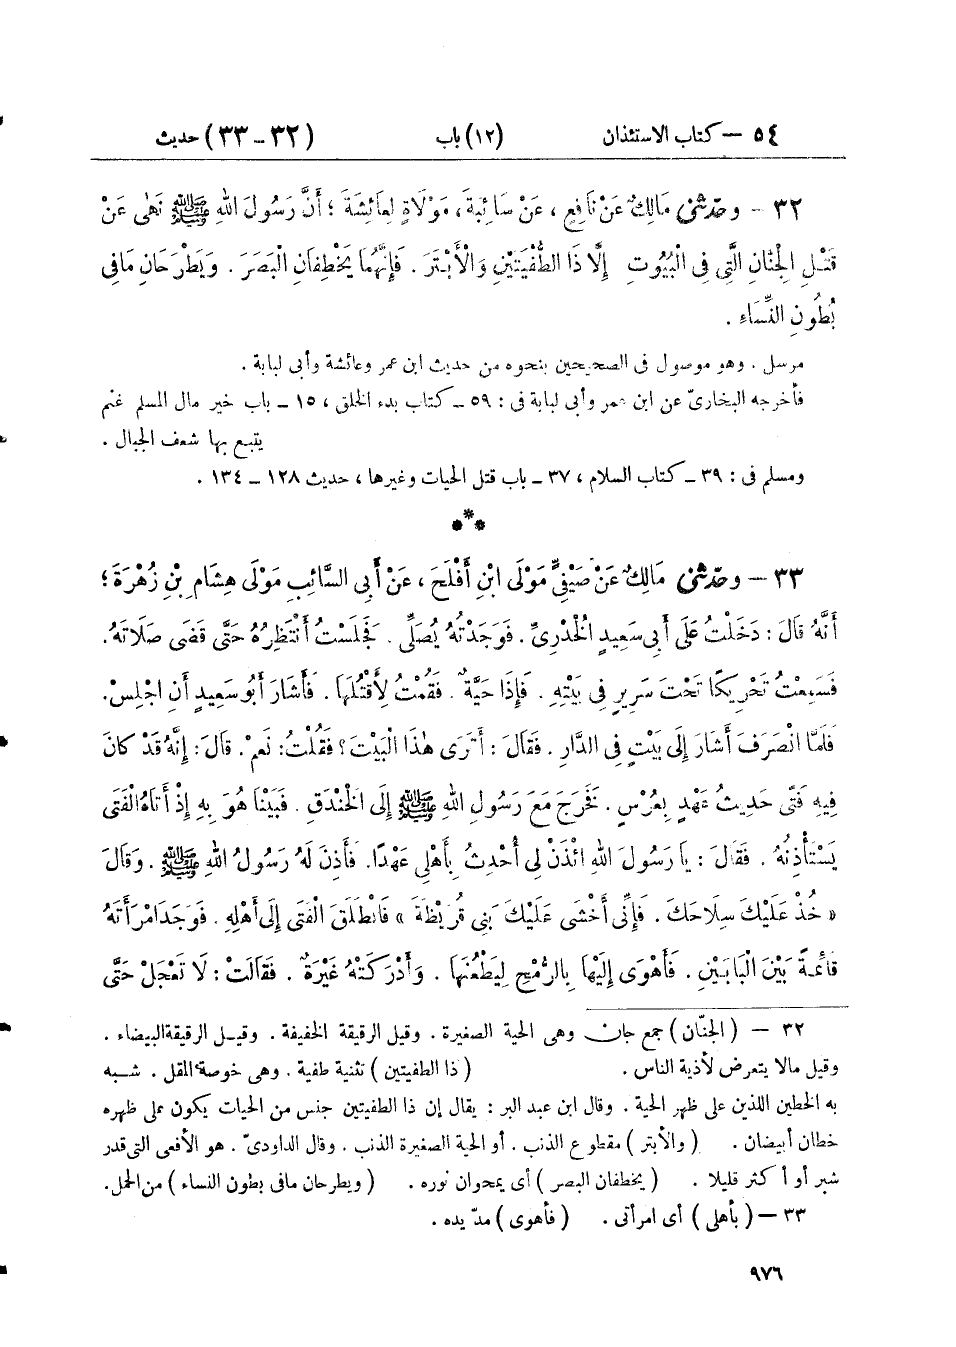 ٥٤ — كتاب الاستئذان (١٢) باب (٣٢ – ٣٣) حديث
٣٢ — وحدّثنى مَالِكٌ عَنْ نَافِعٍ ، عَنْ سَائِبَةَ ، مَوْلَاةٍ لِعَائِشَةَ ؛ أَنَّ رَسُولَ اللهِ ﷺ نَهَى عَنْ
قَتْلِ الْجِنَّانِ الَّتِى فِى الْبُيُوتِ إِلَّا ذَا الطُّفْيَتَيْنِ وَالْأَبْتَرَ . فَإِنَّهُمَا يَخْطِفَانِ الْبَصَرَ . وَيَطْرَحَانِ مَا فِى
بُطُونِ النِّسَاءِ .
مرسل . وهو موصول فى الصحيحين بنحوه من حديث ابن عمر وعائشة وأبى لبابة .
فأخرجه البخارىّ عن ابن عمر وأبى لبابة فى : ٥٩ ــ كتاب بدء الخلق ، ١٥ ــ باب خير مال المسلم غنم
يتبع بها شعف الجبال .
ومسلم فى : ٣٩ ــ كتاب السلام ، ٣٧ ــ باب قتل الحيات وغيرها ، حديث ١٢٨ ــ ١٣٤ .
***
٣٣ — وحدّثنى مَالِكٌ عَنْ صَيْفِىٍّ مَوْلَى ابْنِ أَفْلَحَ ، عَنْ أَبِى السَّائِبِ مَوْلَى هِشَامِ بْنِ زُهْرَةَ ؛
أَنَّهُ قَالَ : دَخَلْتُ عَلَى أَبِى سَعِيدٍ الْخُدْرِىِّ . فَوَجَدْتُهُ يُصَلِّى . فَجَلَسْتُ أَنْتَظِرُهُ حَتَّى قَضَى صَلَاتَهُ .
فَسَمِعْتُ تَحْرِيكًا تَحْتَ سَرِيرٍ فِى بَيْتِهِ . فَإِذَا حَيَّةٌ . فَقُمْتُ لِأَقْتُلَهَا . فَأَشَارَ أَبُو سَعِيدٍ أَنِ اجْلِسْ .
فَلَمَّا انْصَرَفَ أَشَارَ إِلَى بَيْتٍ فِى الدَّارِ . فَقَالَ : أَتَرَى هٰذَا الْبَيْتَ ؟ فَقُلْتُ : نَعَمْ . قَالَ : إِنَّهُ قَدْ كَانَ
فِيهِ فَتًى حَدِيثُ عَهْدٍ بِعُرْسٍ . فَخَرَجَ مَعَ رَسُولِ اللهِ ﷺ إِلَى الْخَنْدَقِ . فَبَيْنَا هُوَ بِهِ إِذْ أَتَاهُ الْفَتَى
يَسْتَأْذِنُهُ . فَقَالَ : يَا رَسُولَ اللهِ ائْذَنْ لِى أُحْدِثُ بِأَهْلِى عَهْدًا . فَأَذِنَ لَهُ رَسُولُ اللهِ ﷺ . وَقَالَ
« خُذْ عَلَيْكَ سِلَاحَكَ . فَإِنِّى أَخْشَى عَلَيْكَ بَنِى قُرَيْظَةَ » فَانْطَلَقَ الْفَتَى إِلَى أَهْلِهِ . فَوَجَدَ امْرَأَتَهُ
قَائِمَةً بَيْنَ الْبَابَيْنِ . فَأَهْوَى إِلَيْهَا بِالرُّمْحِ لِيَطْعُنَهَا . وَأَدْرَكَتْهُ غَيْرَةٌ . فَقَالَتْ : لَا تَعْجَلْ حَتَّى
٣٢ — ( الجنّان ) جمع جان وهى الحية الصغيرة . وقيل الرقيقة الخفيفة . وقيل الرقيقة البيضاء .
وقيل مالا يتعرض لأذية الناس . ( ذا الطفيتين ) تثنية طفية . وهى خوصة المقل . شبه
به الخطين اللذين على ظهر الحية . وقال ابن عبد البر : يقال إن ذا الطفيتين جنس من الحيات يكون على ظهره
خطان أبيضان . ( والأبتر ) مقطوع الذنب . أو الحية الصغيرة الذنب . وقال الداودىّ . هو الأفعى التى قدر
شبر أو أكثر قليلا . ( يخطفان البصر ) أى يمحوان نوره . ( ويطرحان مافى بطون النساء ) من الحمل .
٣٣ — ( بأهلى ) أى امرأتى . ( فأهوى ) مدّ يده .
٩٧٦